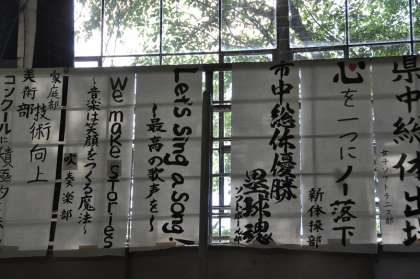 県中総体出場
女子ソフトテニス部
心を一つにノー落下
新体操部
市中総体優勝
塁球魂
ソフト
Let's Sing a Song!
～最高の歌声を～
We make stories
～音楽は笑顔をつくる魔法～
吹奏楽部
家庭部
美術部
技術向上
コンクールに